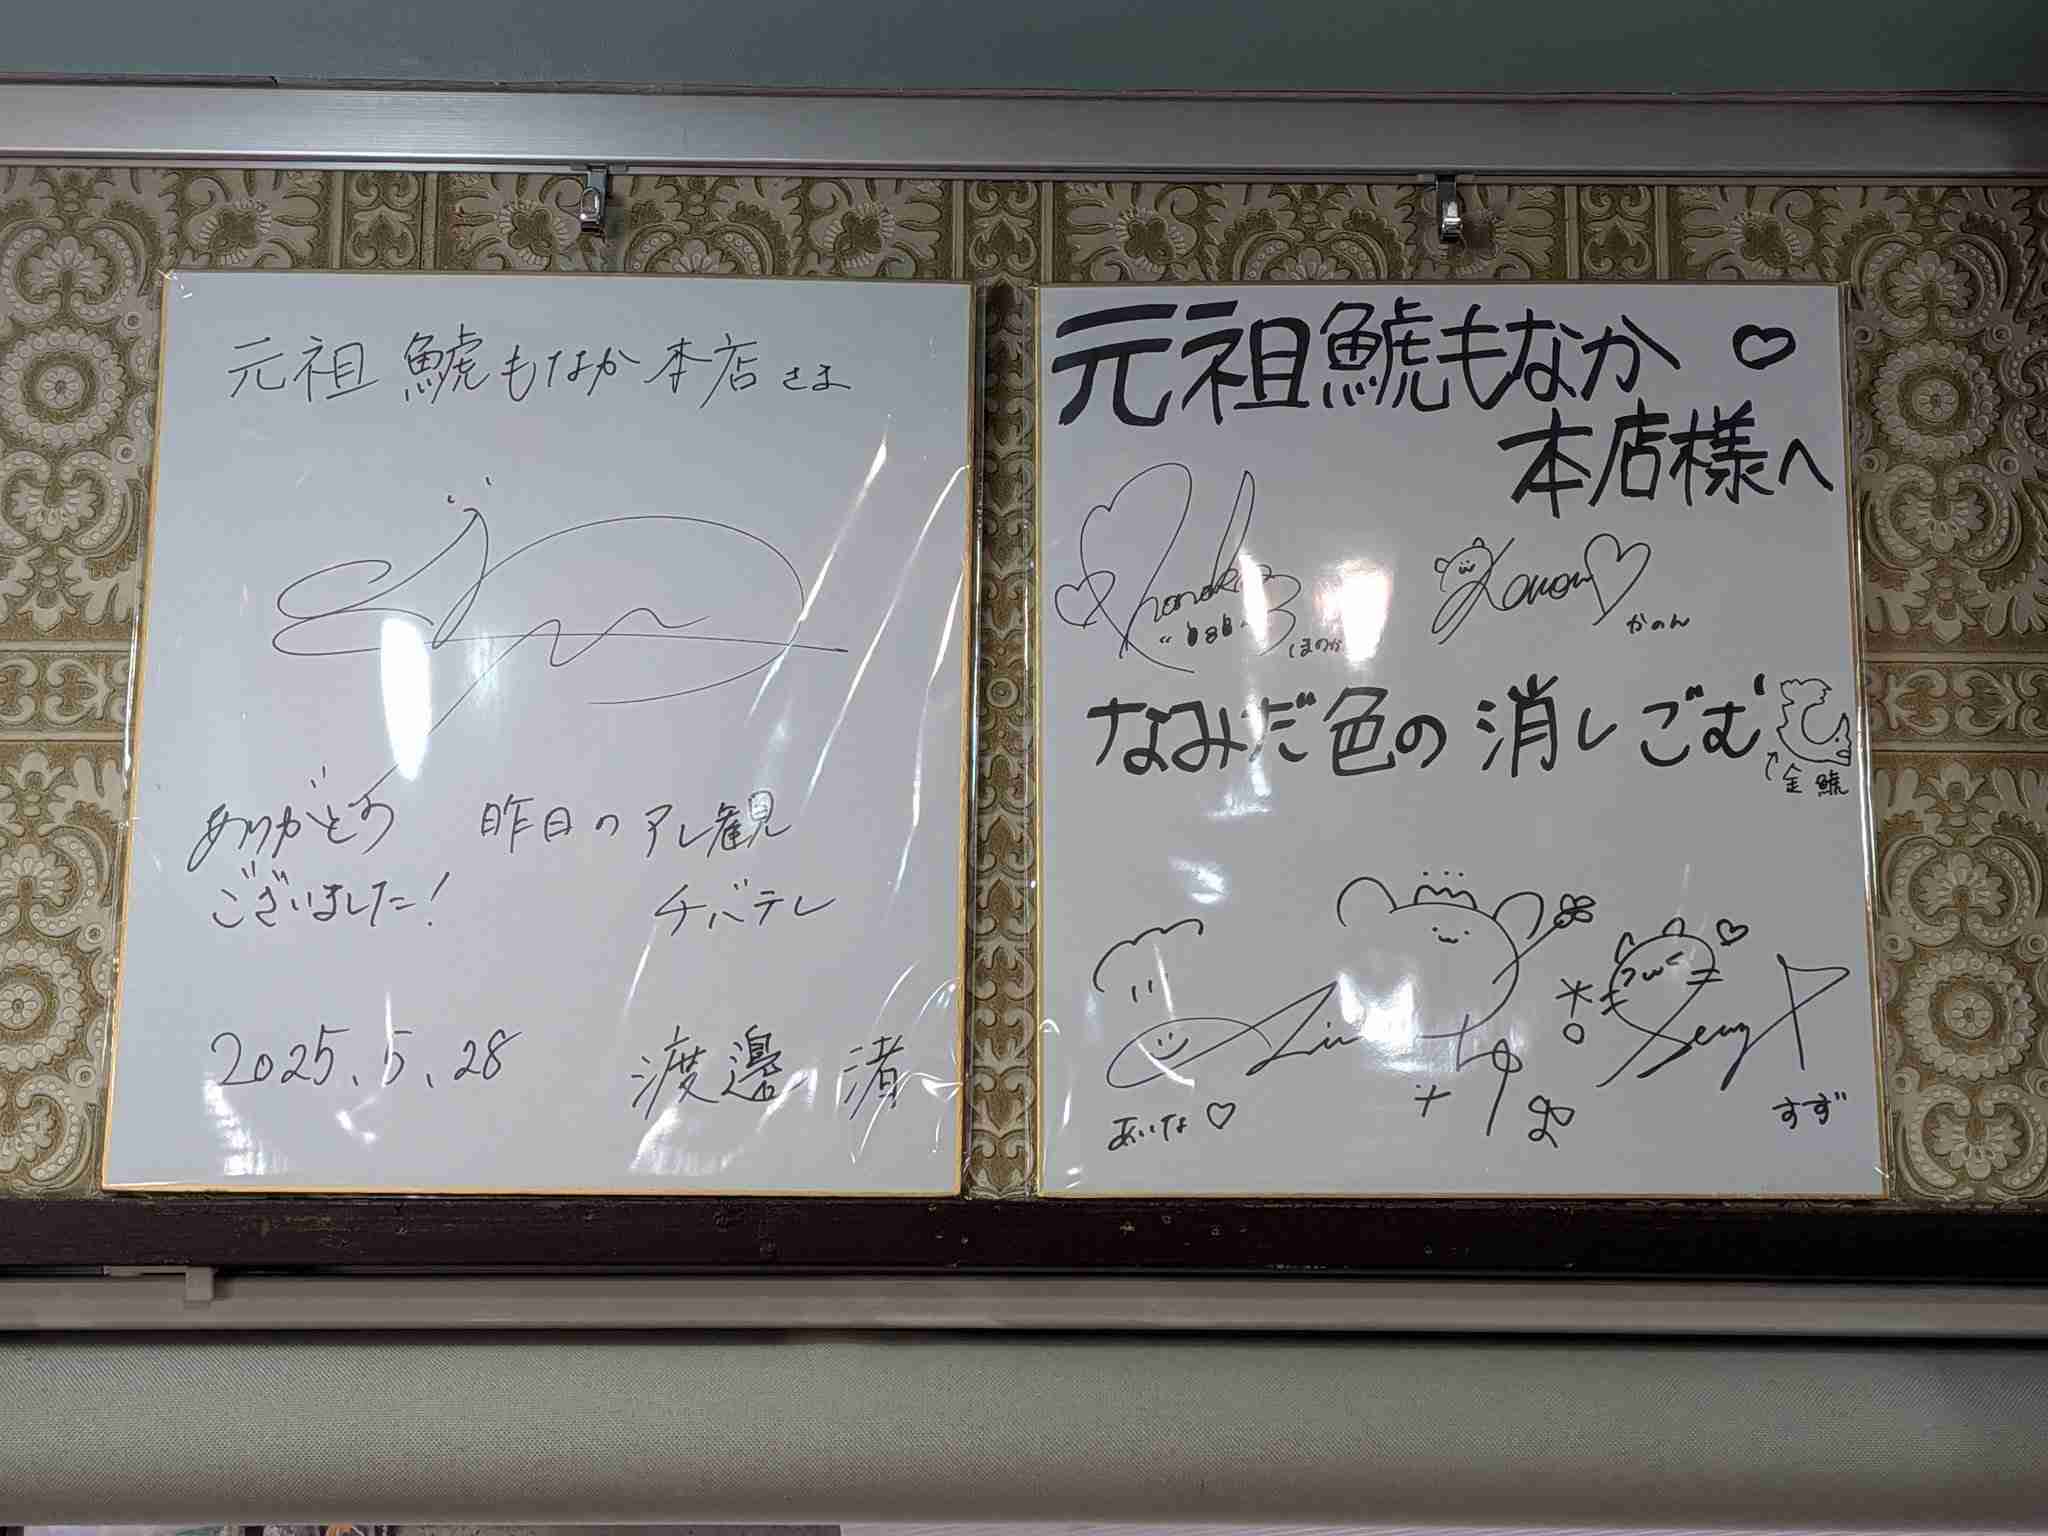 元祖 鯱もなか本店さま
ありがとう
ございました!
昨日のアレ観
チバテレ
2025.5.28
渡邊 渚
元祖鯱もなか♡
本店様へ
Honoka
ほのか
Kanon♡
かのん
なみだ色の消しごむ
金鯱
あいな♡
すず